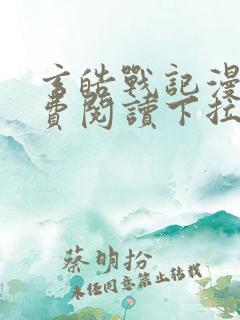 玄皓戰記漫
費閱讀下拉
蔡明扮
未经同意禁止转载